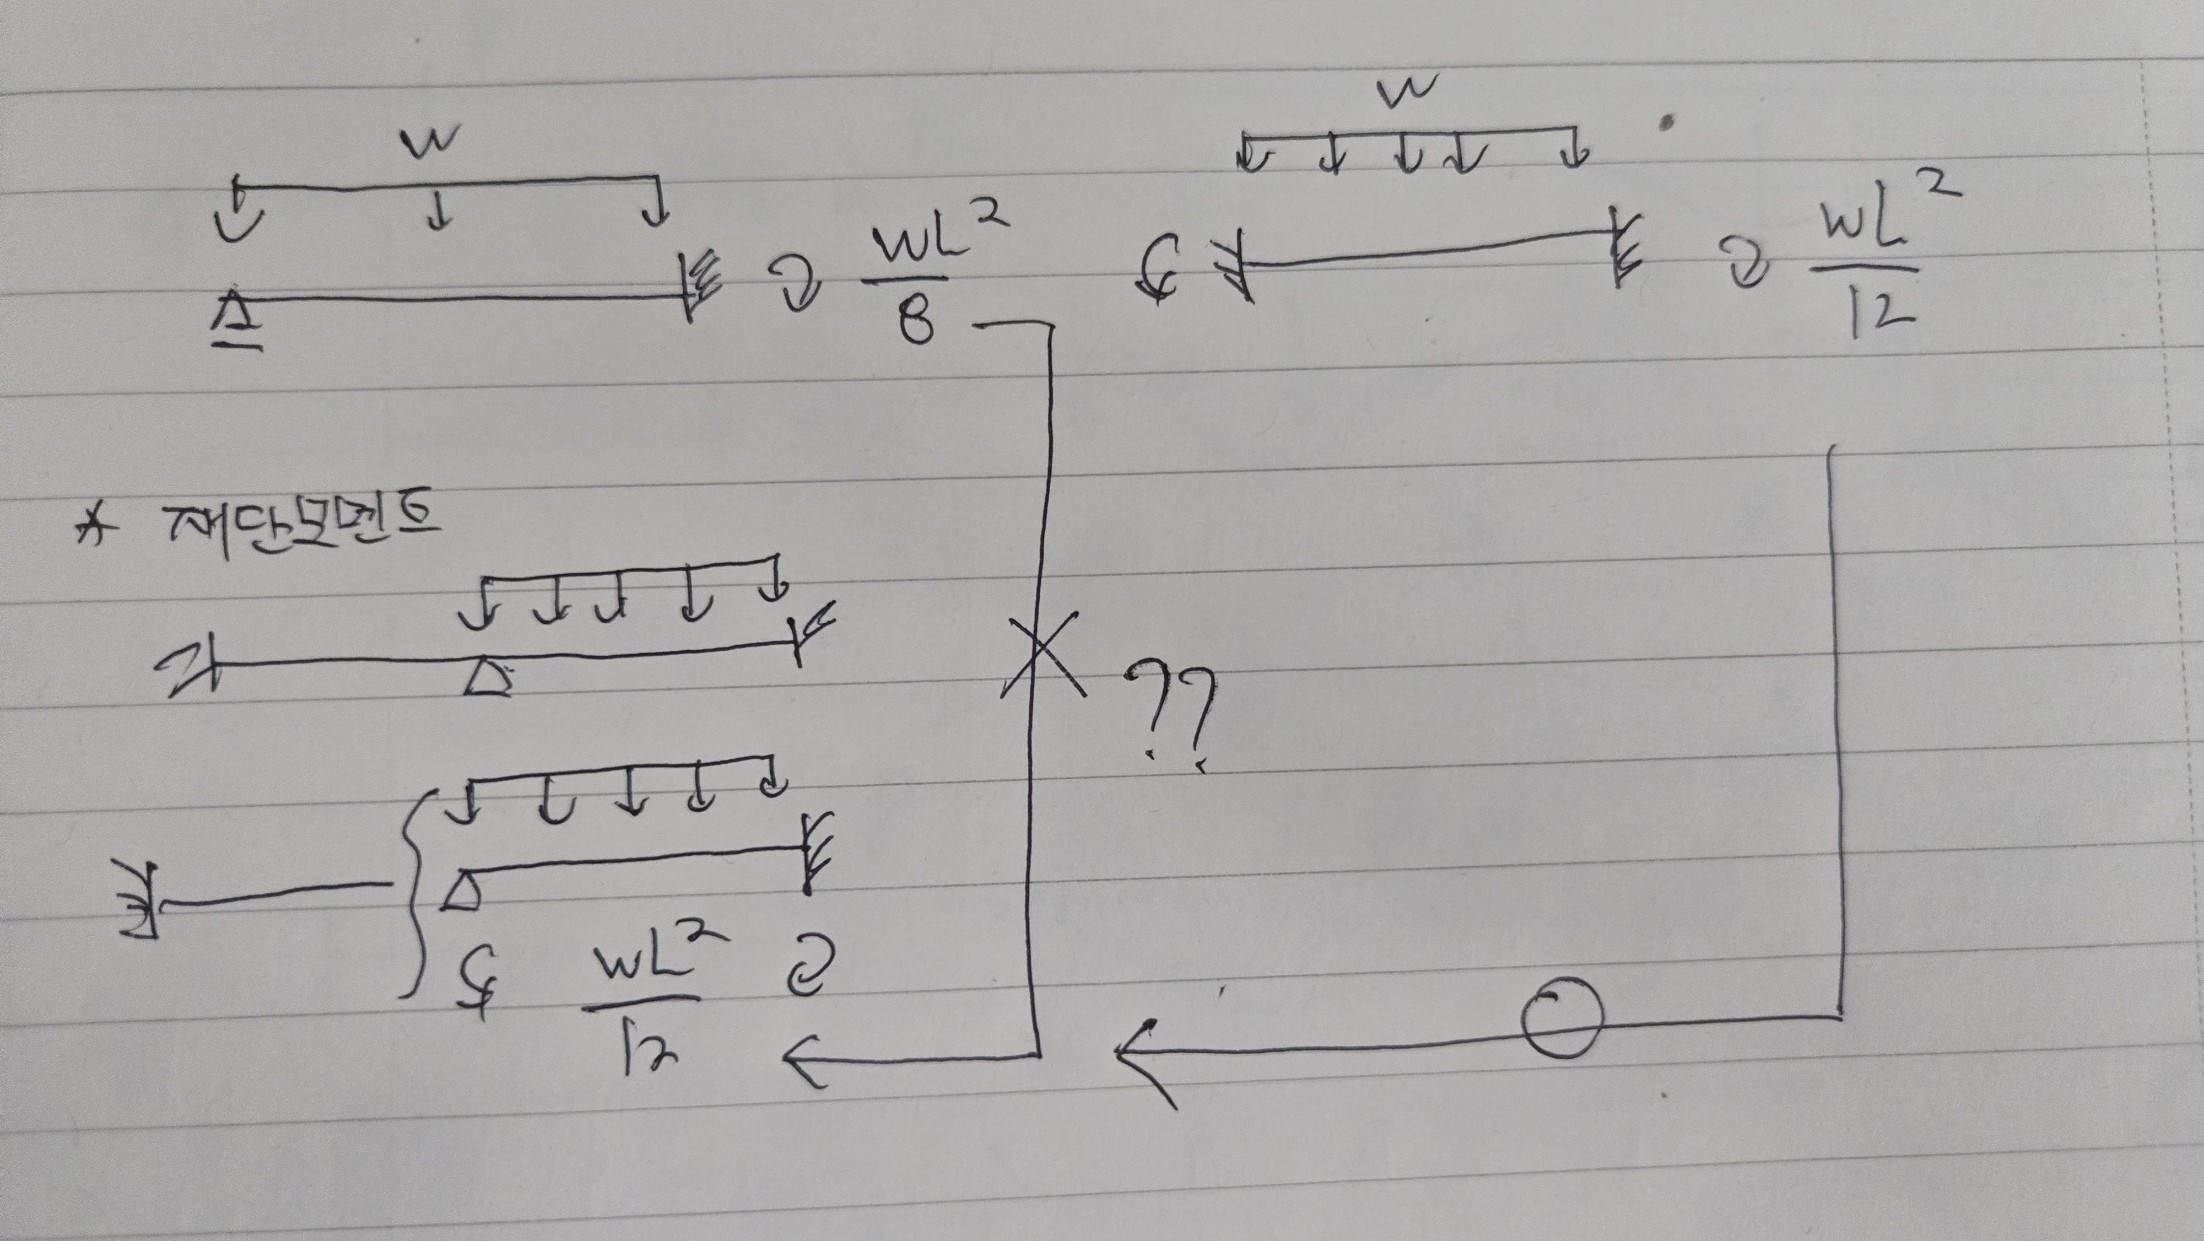 W
W
WL²/8
WL²/12
* 재단모멘트
??
WL²/12